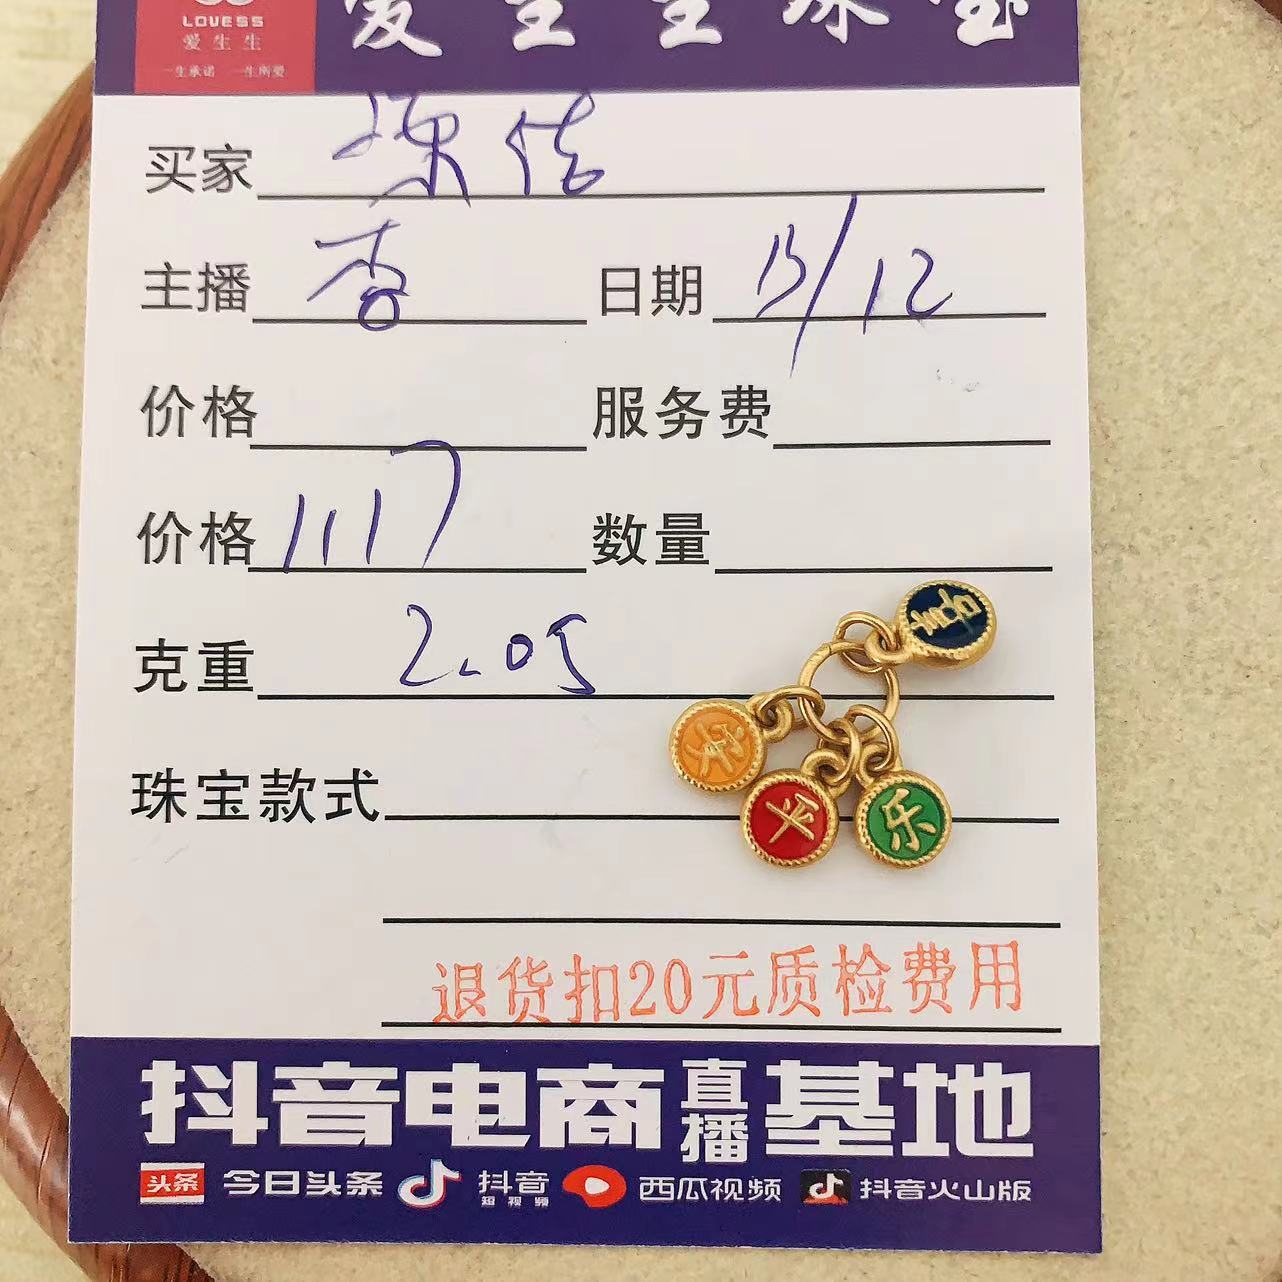 LOVESS
爱生生
一生承诺 一生所爱
爱生生珠宝
买家 陈佳
主播 杏 日期 13/12
价格 服务费
价格 1117 数量
克重 2.05
珠宝款式
平 乐
退货扣20元质检费用
抖音电商直播基地
头条 今日头条 抖音短视频 西瓜视频 抖音火山版